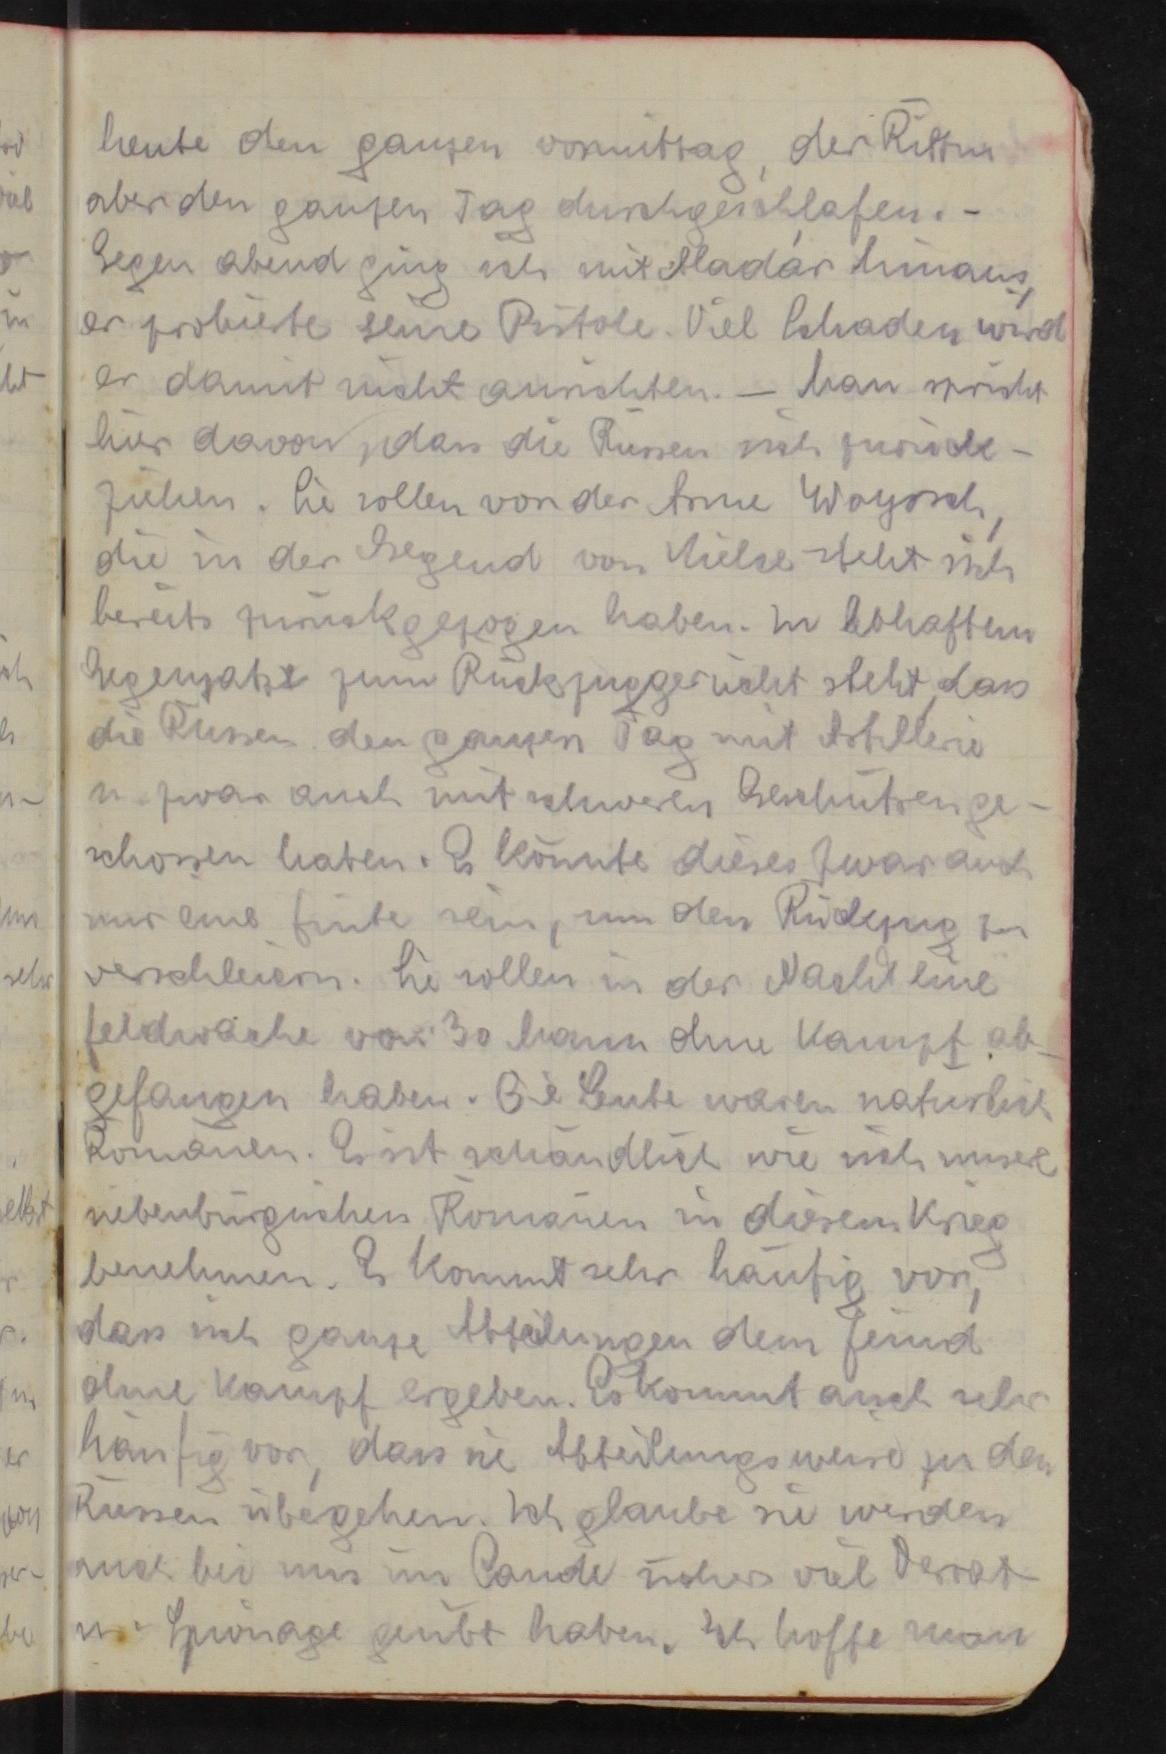 heute den ganzen vormittag, der Rittm
aber den ganzen Tag durchgeschlafen. –
Gegen abend ging ich mit Aladár hinaus,
er probierte seine Pistole. Viel Schaden wird
er damit nicht anrichten. – Man spricht
hier davon, dass die Russen sich zurück-
ziehen. Sie sollen von der Arme Woyrsch,
die in der Gegend von Kielce steht sich
bereits zurückgezogen haben. In lebhaftem
Gegensatze zum Rückzuggerücht steht, dass
die Russen den ganzen Tag mit Artillerie
u. zwar auch mit schweren Geschützen ge-
schossen haben. Es könnte dieses zwar auch
nur eine finte sein, um den Rückzug zu
verschleiern. Sie sollen in der Nacht eine
feldwache von 30 Mann ohne Kampf ab-
gefangen haben. Die Leute waren natürlich
Romänen. Es ist schändlich wie sich unsere
siebenbürgischen Romänen in diesem Krieg
benehmen. Es kommt sehr häufig vor,
dass sich ganze Abteilungen dem feind
ohne Kampf ergeben. Es kommt auch sehr
häufig vor, dass sie Abteilungsweise zu den
Russen übegehen. Ich glaube sie werden
auch bei uns im Lande sicher viel Verrat
u. Spionage geübt haben. Ich hoffe man